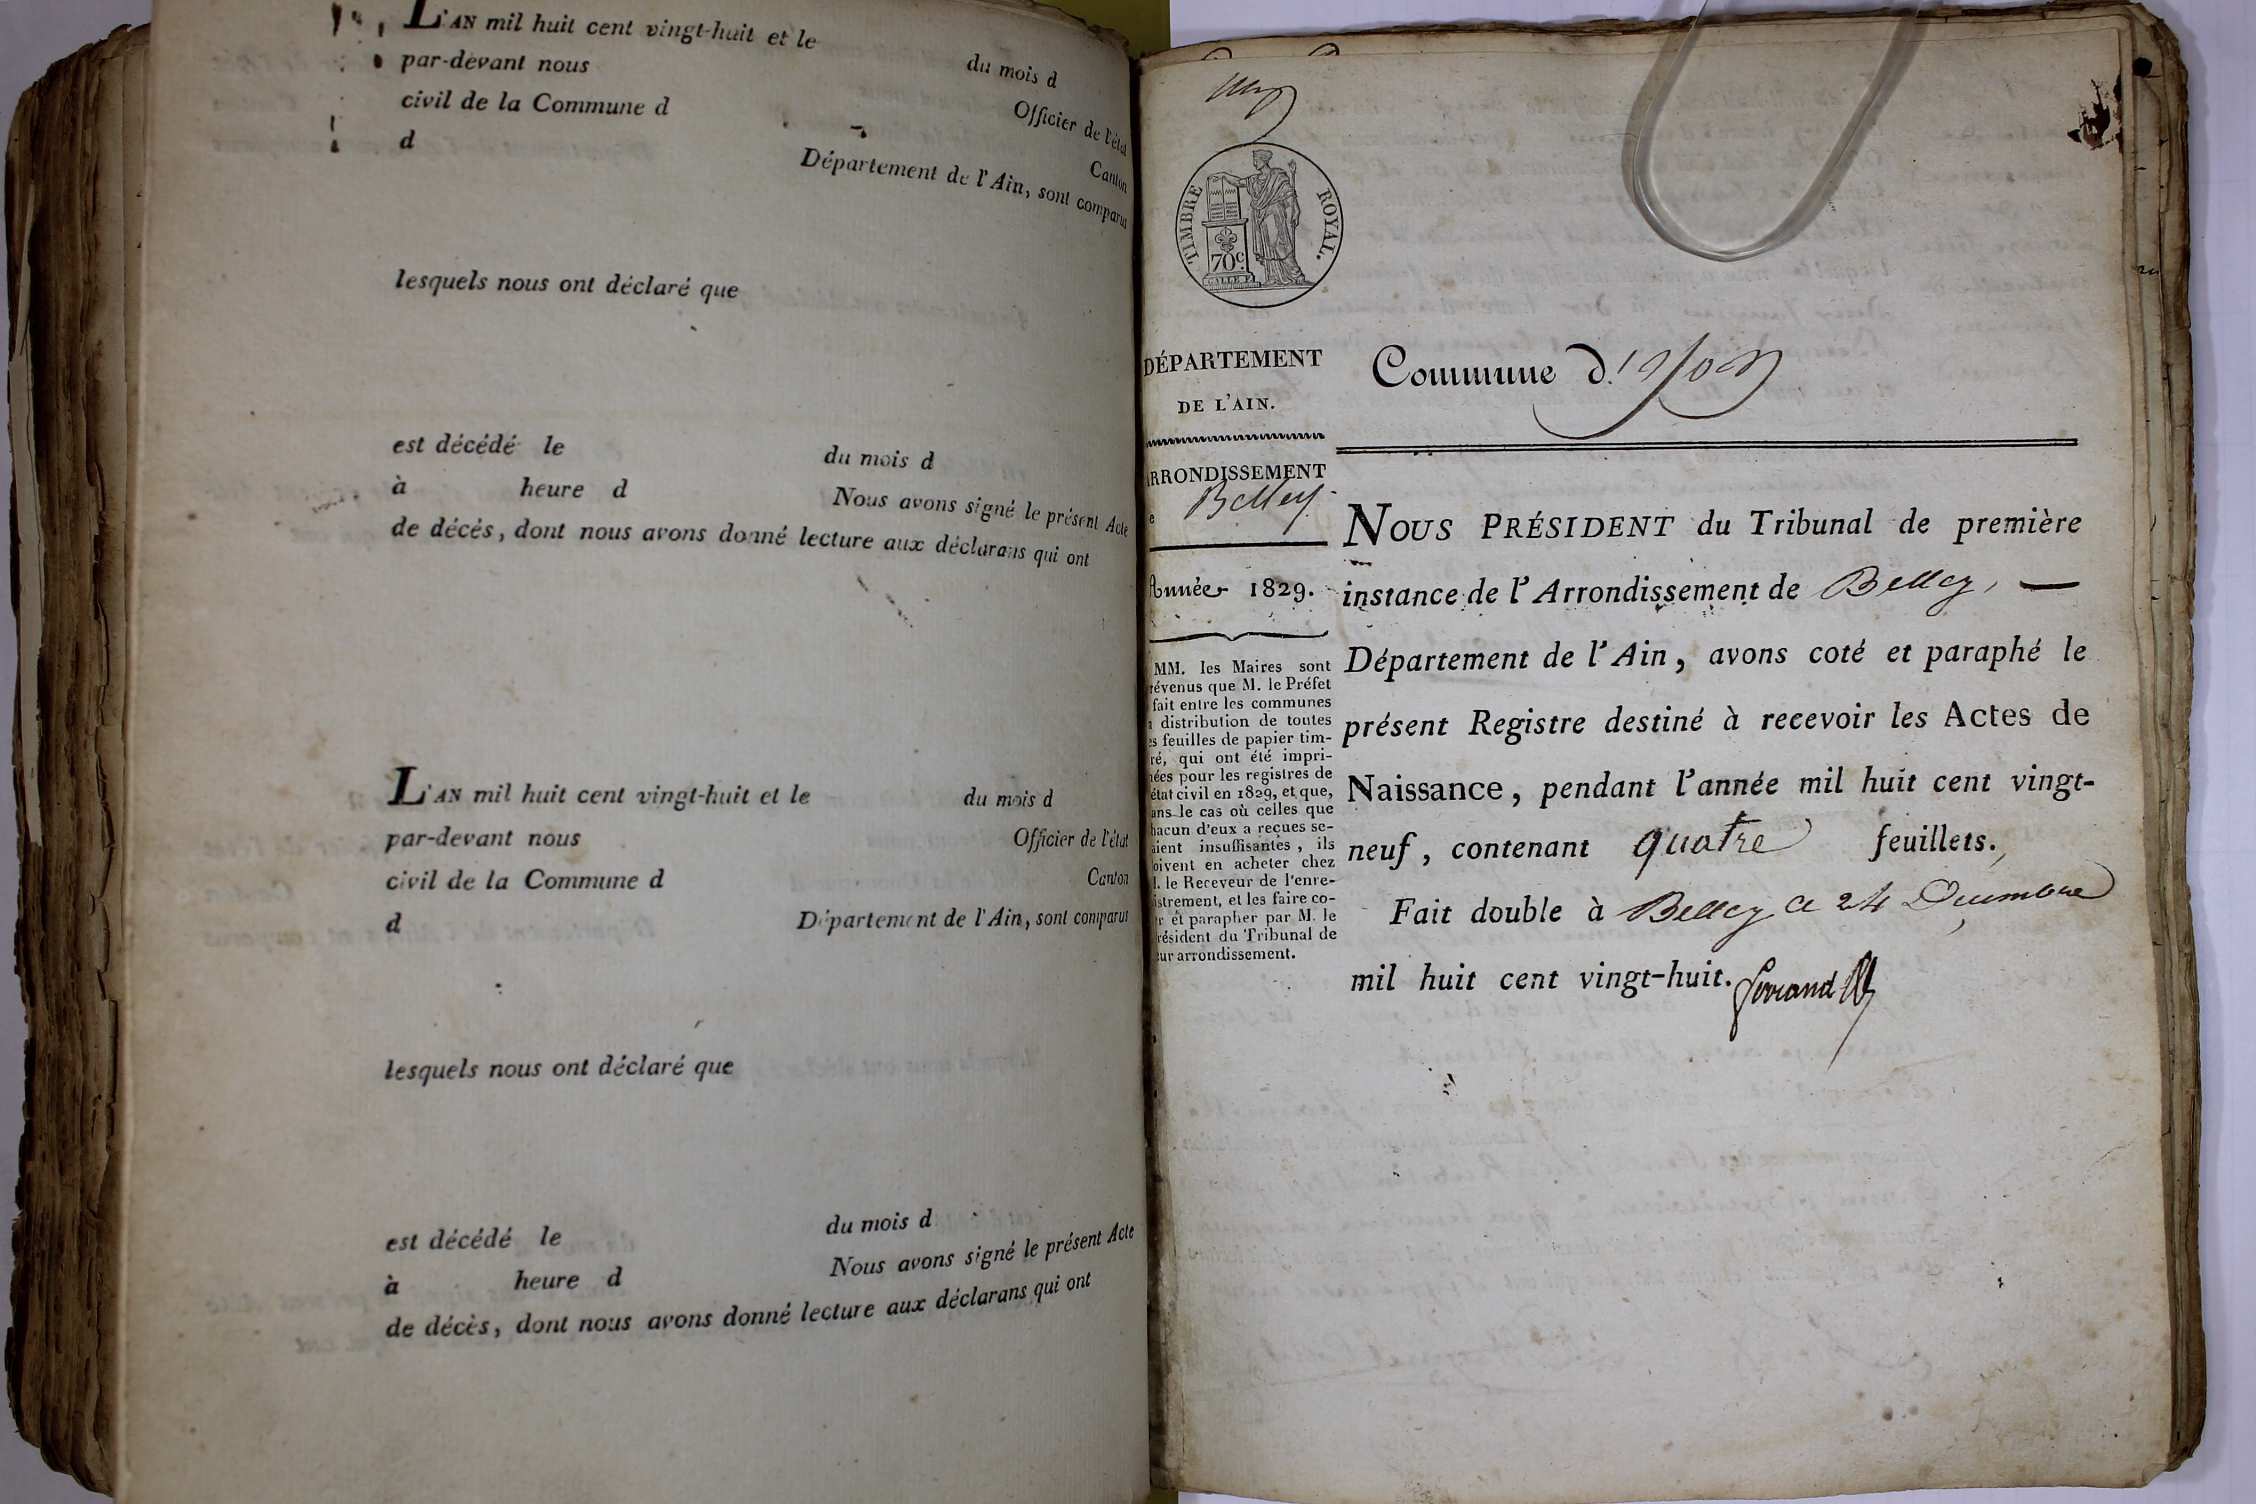 L'AN mil huit cent vingt-huit et le du mois d
par-devant nous Officier de l'état
civil de la Commune d Canton
d Département de l'Ain, sont comparus
lesquels nous ont déclaré que
est décédé le du mois d
à heure d Nous avons signé le présent Acte
de décès, dont nous avons donné lecture aux déclarans qui ont
L'AN mil huit cent vingt-huit et le du mois d
par-devant nous Officier de l'état
civil de la Commune d Canton
d Département de l'Ain, sont comparus
lesquels nous ont déclaré que
est décédé le du mois d
à heure d Nous avons signé le présent Acte
de décès, dont nous avons donné lecture aux déclarans qui ont
TIMBRE ROYAL.
70c.
DÉPARTEMENT
DE L'AIN.
RRONDISSEMENT
e Belley.
Année 1829.
MM. les Maires sont
révenus que M. le Préfet
fait entre les communes
a distribution de toutes
es feuilles de papier tim-
ré, qui ont été impri-
nées pour les registres de
état civil en 1829, et que,
ans le cas où celles que
hacun d'eux a reçues se-
aient insuffisantes, ils
oivent en acheter chez
I. le Receveur de l'enre-
istrement, et les faire co-
r et parapher par M. le
résident du Tribunal de
ur arrondissement.
Commune d
NOUS PRÉSIDENT du Tribunal de première
instance de l'Arrondissement de Belley, —
Département de l'Ain, avons coté et paraphé le
présent Registre destiné à recevoir les Actes de
Naissance, pendant l'année mil huit cent vingt-
neuf, contenant quatre feuillets.
Fait double à Belley ce 24 Decembre
mil huit cent vingt-huit.